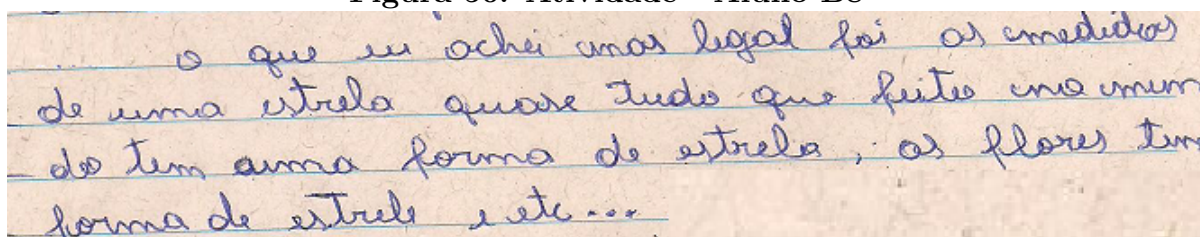 o que eu achei mas legal foi as medidias
de uma estrela quase tudo que feito na mun
do tem auma forma de estrela, as flores tem
forma de estrele e etc...